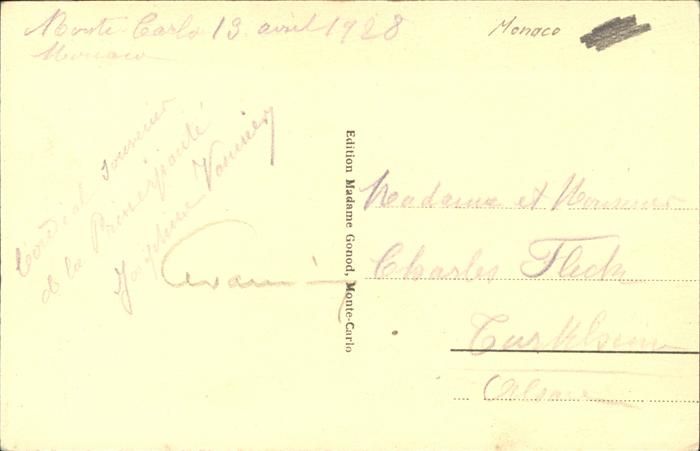 Monte-Carlo 13 avril 1928
Monaco
Monaco
Cordial souvenir
de la Principauté
Edition Madame Gonod, Monte-Carlo
Madame et Monsieur
Charles Fleck
Turkheim
Alsace